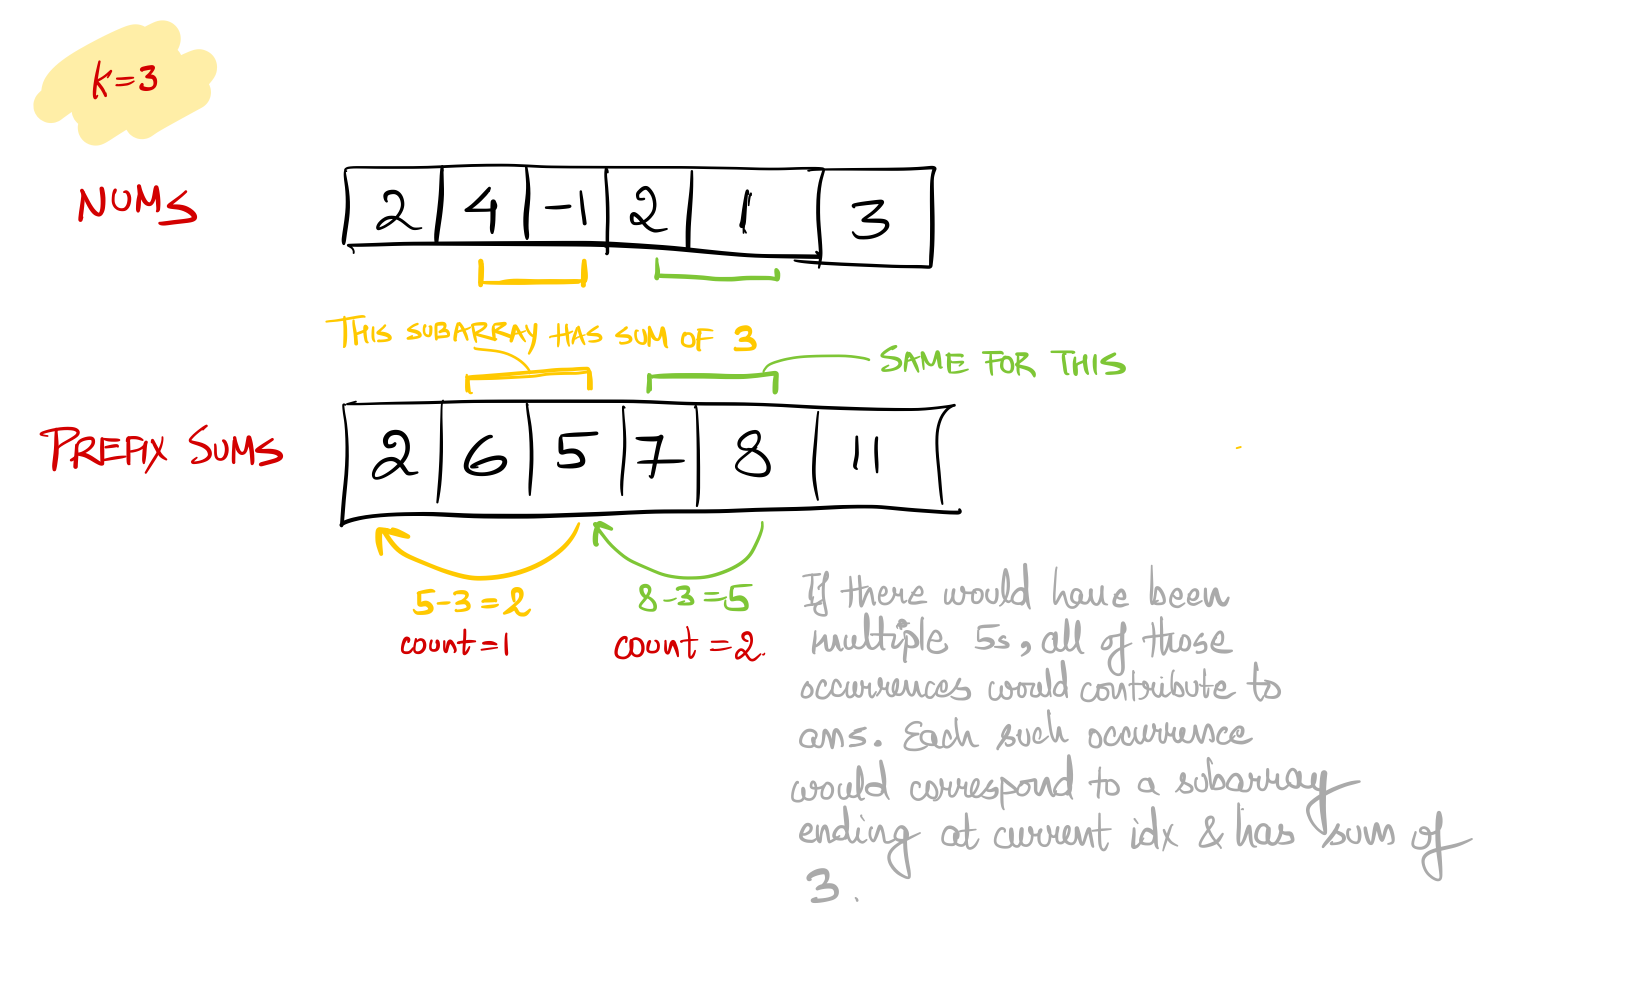 K=3
NUMS 2 4 -1 2 1 3
THIS SUBARRAY HAS SUM OF 3
SAME FOR THIS
PREFIX SUMS 2 6 5 7 8 11
5-3=2 8-3=5
count=1 count=2.
If there would have been
multiple 5s, all of those
occurrences would contribute to
ans. Each such occurrence
would correspond to a subarray
ending at current idx & has sum of
3.